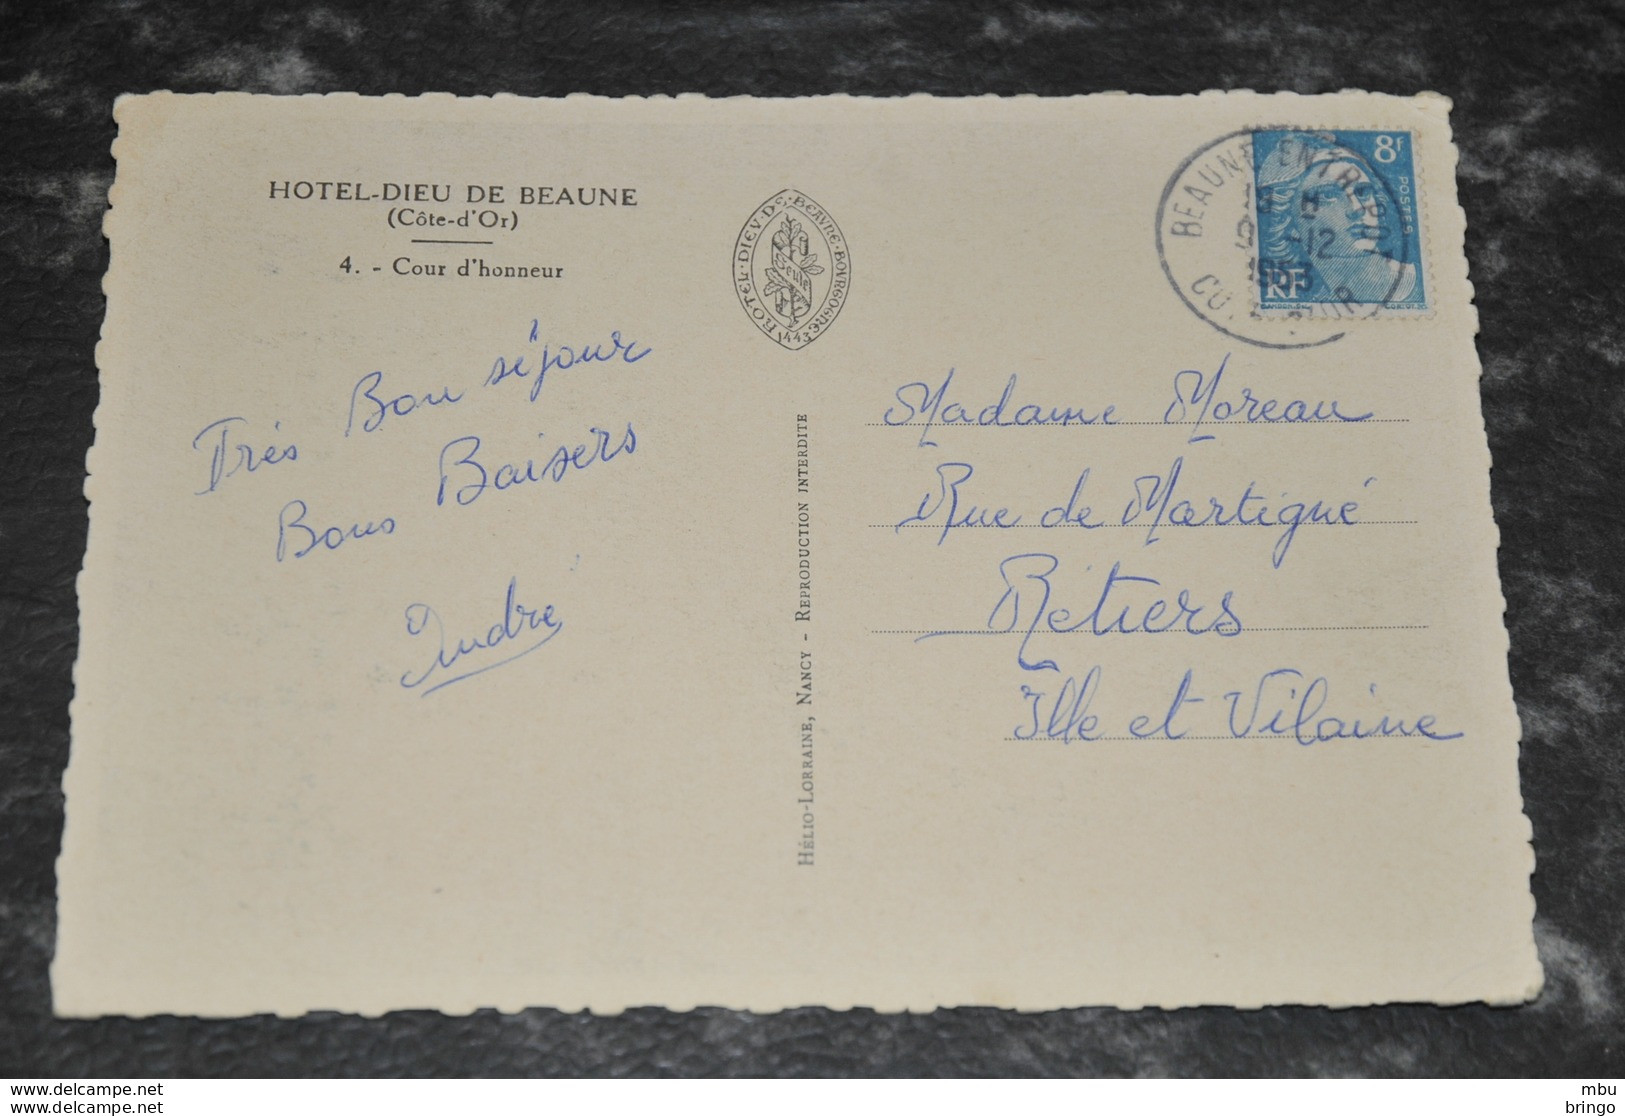 HOTEL-DIEU DE BEAUNE
(Côte-d'Or)
4. - Cour d'honneur
HOTEL·DIEV·DE·BEAVNE·BOVRGOGNE
Seulle
1443
Très Bon séjour
Bons Baisers
André
HÉLIO-LORRAINE, NANCY - REPRODUCTION INTERDITE
BEAUNE ENTREPOT
-12
1953
8f
POSTES
RF
Madame Moreau
Rue de Martigné
Rétiers
Ille et Vilaine
www.delcampe.net
www.delcampe.com
mbu
bringo